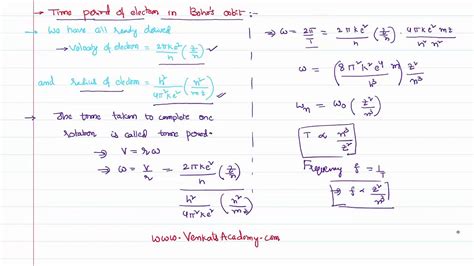 → Time period of electron in Bohr's orbit :-
→ We have all ready derived
→ Velocity of electron = 2πke²/h (z/n) ✓
and radius of electron = h²/4π²ke² (n²/mz) ✓
→ The time taken to complete one
rotation is called time period.
→ V = rω
→ ω = V/r = 2πke²/h (z/n) / h²/4π²ke² (n²/mz)
⇒ ω = 2π/T = 2πke²/h (z/n) · 4π²ke² mz/h² n²
ω = (8π³k²e⁴m/h³) z²/n³
ωn = ω₀ (z²/n³)
T ∝ n³/z²
Frequency f = 1/T
⇒ f ∝ z²/n³
www.VenkatsAcademy.com